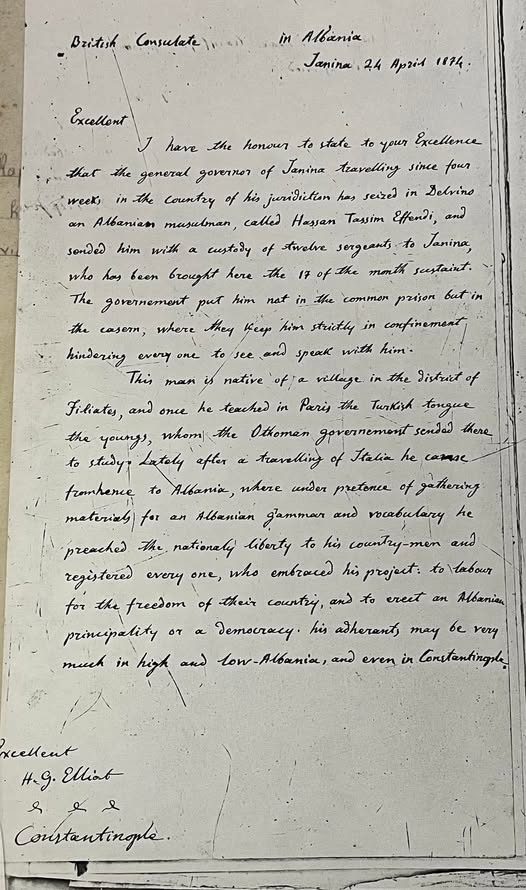 British Consulate in Albania
Janina 24 April 1874.
Excellent
I have the honour to state to your Excellence
that the general governor of Janina travelling since four
weeks in the country of his juridiction has seized in Delvino
an Albanian musulman, called Hassan Tassim Effendi, and
sended him with a custody of twelve sergeants to Janina,
who has been brought here the 17 of the month sustaint.
The governement put him not in the common prison but in
the casern, where they keep him strictly in confinement,
hindering every one to see and speak with him.
This man is native of a village in the district of
Filiates, and once he teached in Paris the Turkish tongue
the youngs, whom the Othoman governement sended there
to study. Lately after a travelling of Italia he came
fromhence to Albania, where under pretence of gathering
materials for an Albanian grammar and vocabulary he
preached the nationaly liberty to his country-men and
registered every one, who embraced his project: to labour
for the freedom of their country, and to erect an Albanian
principality or a democracy. his adherants may be very
much in high and low-Albania, and even in Constantinople.
Excellent
H. G. Elliot
& & &
Constantinople.